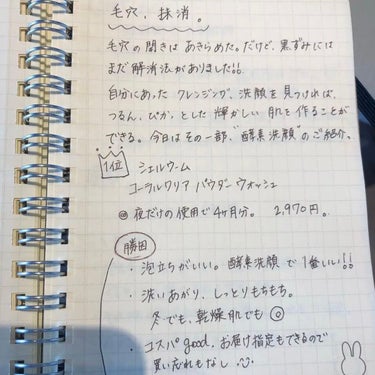 毛穴、抹消。
毛穴の開きはあきらめた。だけど、黒ずみには
まだ解消法がありました!!
自分にあった クレンジング、洗顔を見つければ、
つるん、ぴか、とした 輝かしい 肌を作ることが
できる。今日はその一部、"酵素洗顔"のご紹介、
1位 シェルクーム
コーラルクリア パウダーウォッシュ
夜だけの使用で4ヶ月分。 2,970円。
勝因
・泡立ちがいい。酵素洗顔で1番いい!!
・洗いあがり、しっとりもちもち。
冬でも、乾燥肌でも ◎
・コスパgood、お届け指定もできるので
買い忘れもなし